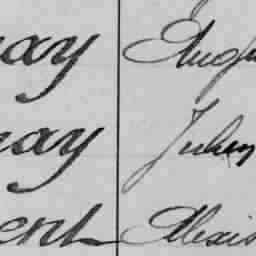 ay Eug
ay Julien
ent Alexis